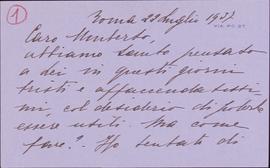 1
Roma 28 Luglio 1937
VIA PO 27
Caro Monterso,
abbiamo tanto pensato
a Lei in questi giorni
tristi e affacendatissi=
mi, col desiderio di poterle
essere utili. Ma come
fare? Ho tentato di